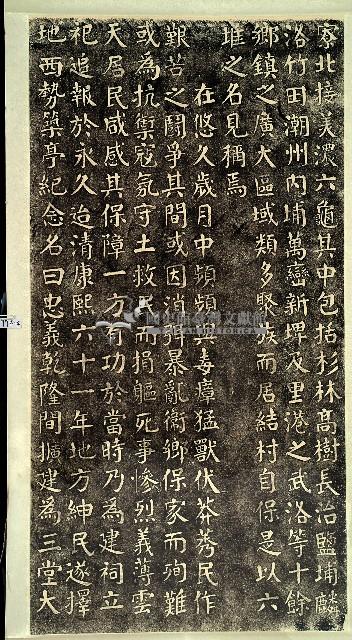 寮北接美濃六龜其中包括杉林高樹長治鹽埔麟
洛竹田潮州內埔萬巒新埤及里港之武洛等十餘
鄉鎮之廣大區域類多聚族而居結村自保是以六
堆之名見稱焉
在悠久歲月中頻頻與毒瘴猛獸伏莽莠民作
艱苦之鬪爭其間或因消弭暴亂衞鄉保家而殉難
或為抗禦寇氛守土救民而捐軀死事慘烈義薄雲
天居民咸感其保障一方有功於當時乃為建祠立
祀追報於永久迨清康熙六十一年地方紳民遂擇
地西勢築亭紀念名曰忠義乾隆間擴建為三堂大